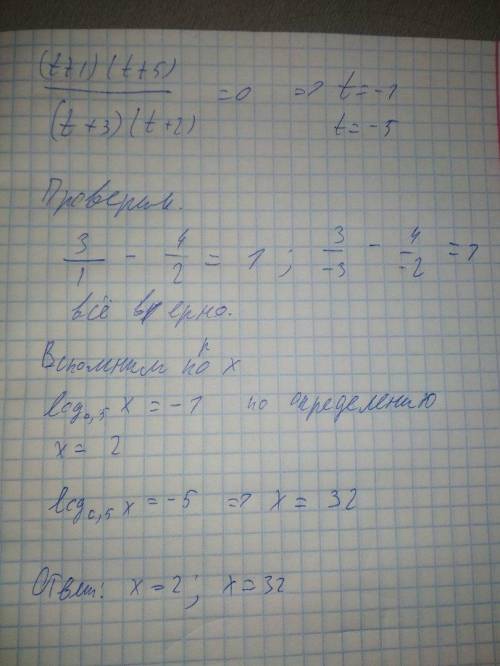 (t+1)(t+5)
/ (t+3)(t+2) = 0 => t = -1
t = -5
Проверим.
3/1 - 4/2 = 1 ; 3/-3 - 4/-2 = 1
всё верно.
Вспомним пр х
log0,5 x = -1 по определению
x = 2
log0,5 x = -5 => x = 32
Ответ: x = 2 ; x = 32